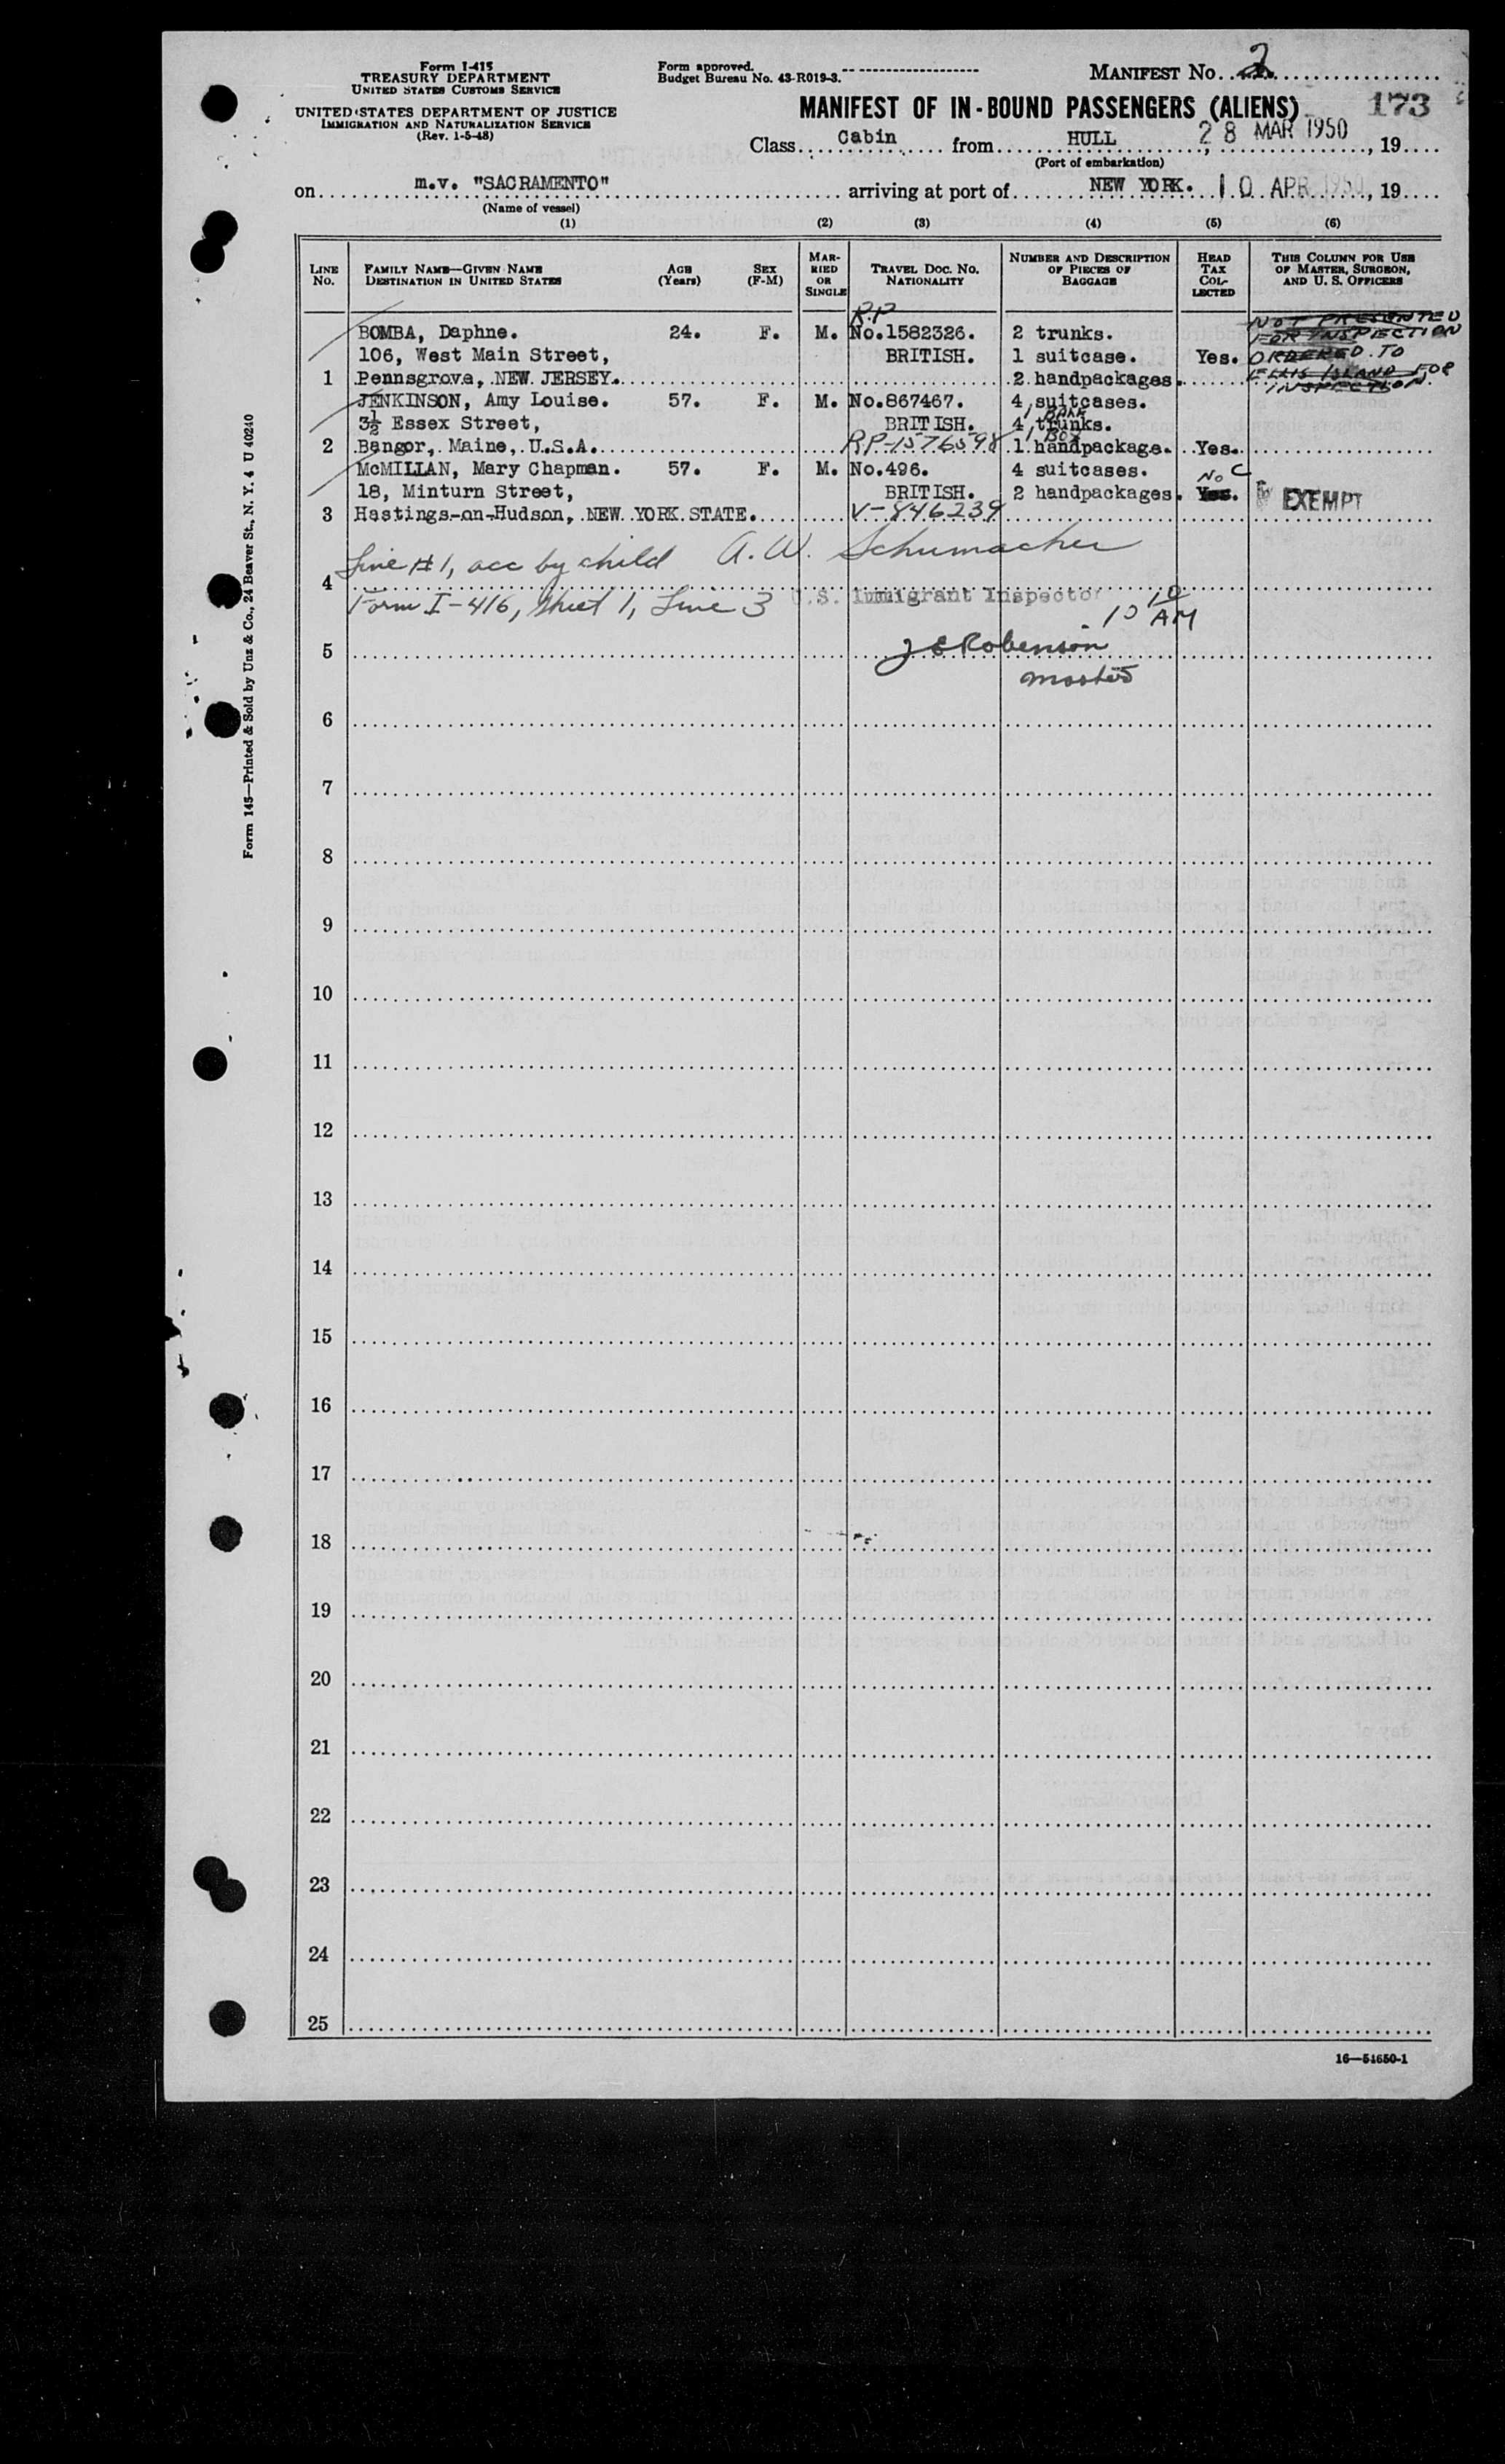 Form I-415
TREASURY DEPARTMENT
UNITED STATES CUSTOMS SERVICE
UNITED STATES DEPARTMENT OF JUSTICE
IMMIGRATION AND NATURALIZATION SERVICE
(Rev. 1-5-48)
Form approved.
Budget Bureau No. 43-R019-3.
MANIFEST NO. 2
MANIFEST OF IN-BOUND PASSENGERS (ALIENS) 173
Class Cabin from HULL, 28 MAR 1950, 19
(Port of embarkation)
on m.v. "SACRAMENTO" arriving at port of NEW YORK. 10 APR 1950, 19
(Name of vessel)
(1) (2) (3) (4) (5) (6)
LINE NO.
FAMILY NAME—GIVEN NAME
DESTINATION IN UNITED STATES
AGE (Years)
SEX (F-M)
MARRIED OR SINGLE
TRAVEL DOC. NO. NATIONALITY
NUMBER AND DESCRIPTION OF PIECES OF BAGGAGE
HEAD TAX COLLECTED
THIS COLUMN FOR USE OF MASTER, SURGEON, AND U. S. OFFICERS
R.P
BOMBA, Daphne. 24. F. M. No.1582326. 2 trunks. NOT PRESENTED
106, West Main Street, BRITISH. 1 suitcase. Yes. FOR INSPECTION ORDERED TO
1 Pennsgrove, NEW JERSEY. 2 handpackages. ELLIS ISLAND FOR INSPECTION.
JENKINSON, Amy Louise. 57. F. M. No.867467. 4 suitcases.
3½ Essex Street, BRITISH. 4 trunks.
2 Bangor, Maine, U.S.A. RP-1576598 1 BOX 1 handpackage. Yes.
McMILLAN, Mary Chapman. 57. F. M. No.496. 4 suitcases. No C
18, Minturn Street, BRITISH. 2 handpackages. Yes. EXEMPT
3 Hastings-on-Hudson, NEW YORK STATE. V-846239
Line #1, acc by child A. W. Schumacher
4
Form I-416, sheet 1, Line 3 U.S. Immigrant Inspector
10 10 AM
5 J E Robenson
Master
6
7
8
9
10
11
12
13
14
15
16
17
18
19
20
21
22
23
24
25
16—54650-1
Form 145—Printed & Sold by Unz & Co., 24 Beaver St., N. Y. 4 U 40240